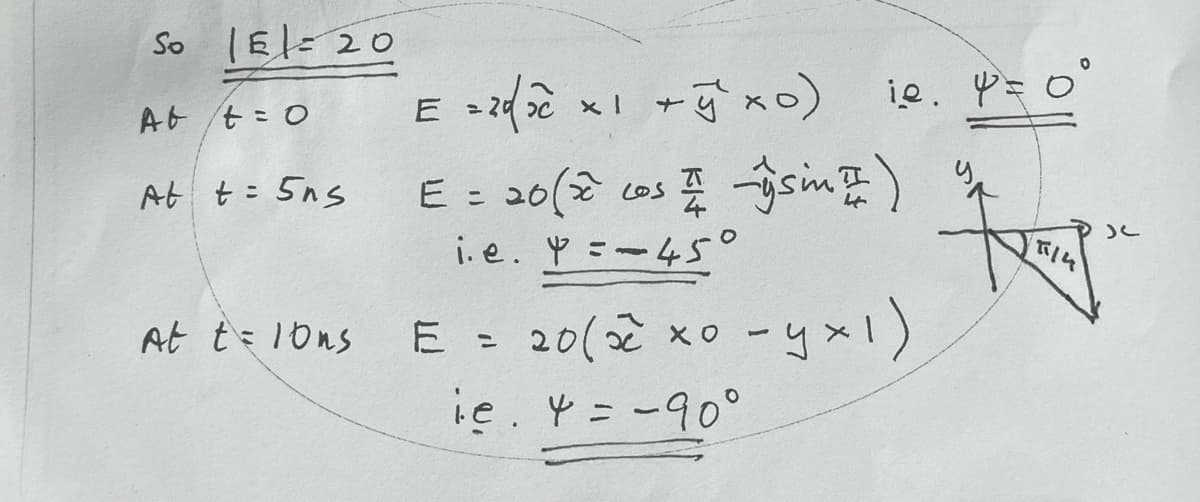 So |E| = 20
At t = 0 E = 20(x̂ × 1 + ŷ × 0) i.e. Ψ = 0°
At t = 5ns E = 20(x̂ cos π/4 - ŷ sin π/4)
i.e. Ψ = -45°
y
x
π/4
At t = 10ns E = 20(x̂ × 0 - y × 1)
i.e. Ψ = -90°